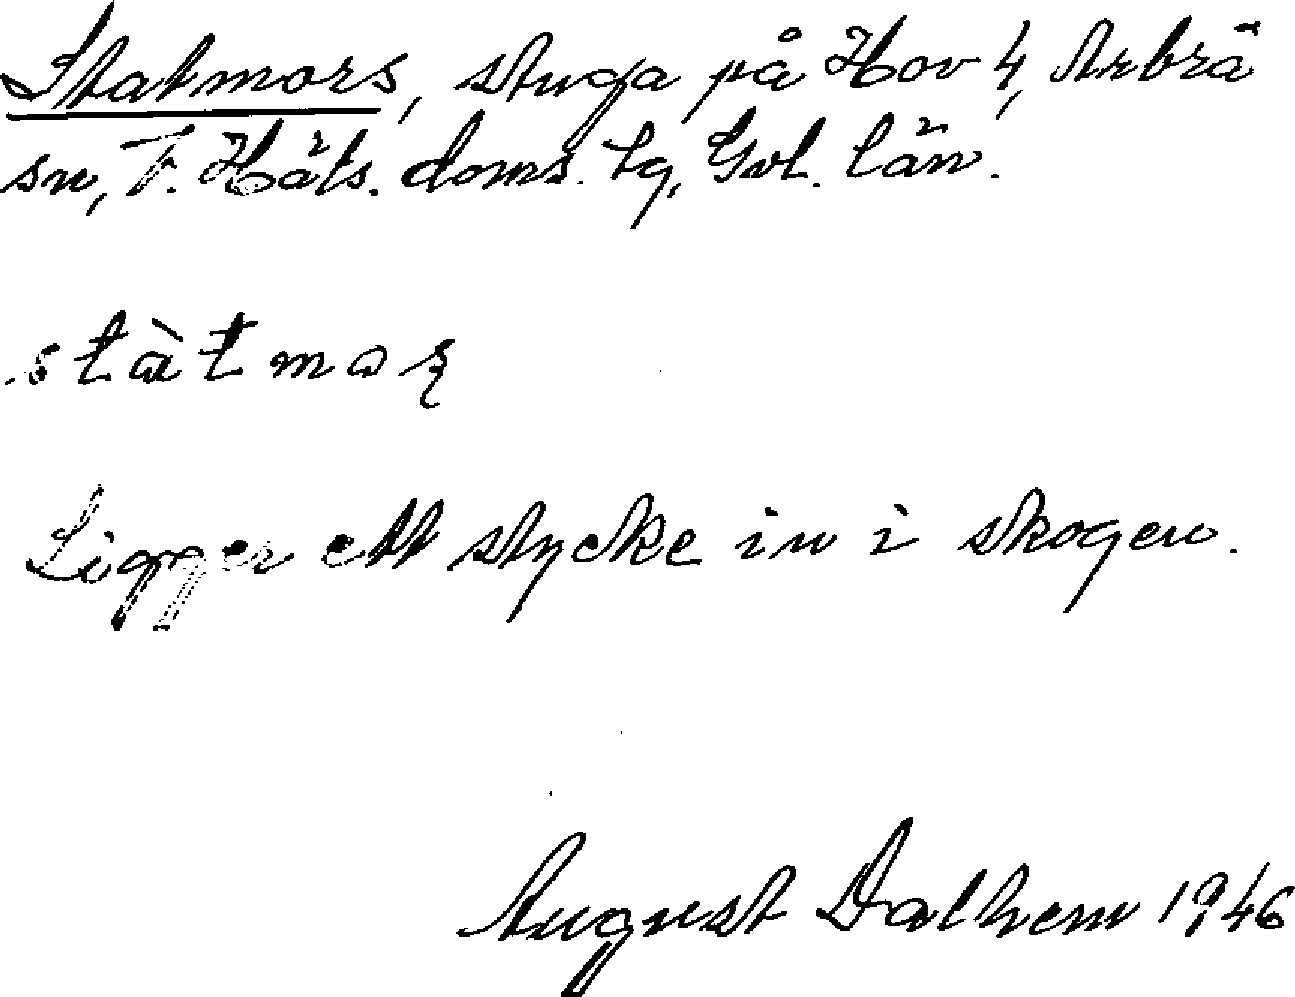 Statmors, stuga på Hov 4, Arbrå
sn, V. Häls. doms. tg, Gvl. län.
stàtmoʂ
Ligger ett stycke in i skogen.
August Dalhem 1946